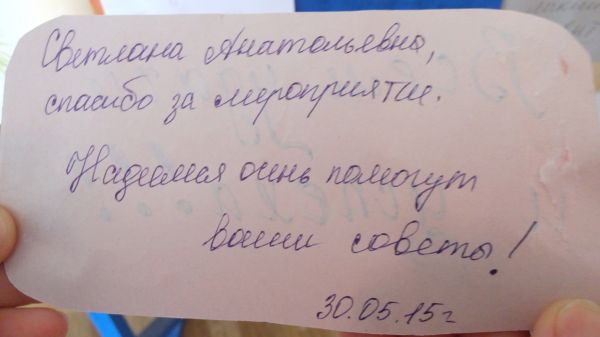 Светлана Анатольевна,
спасибо за мероприятие.
Надеемся очень помогут
ваши советы!
30.05.15г